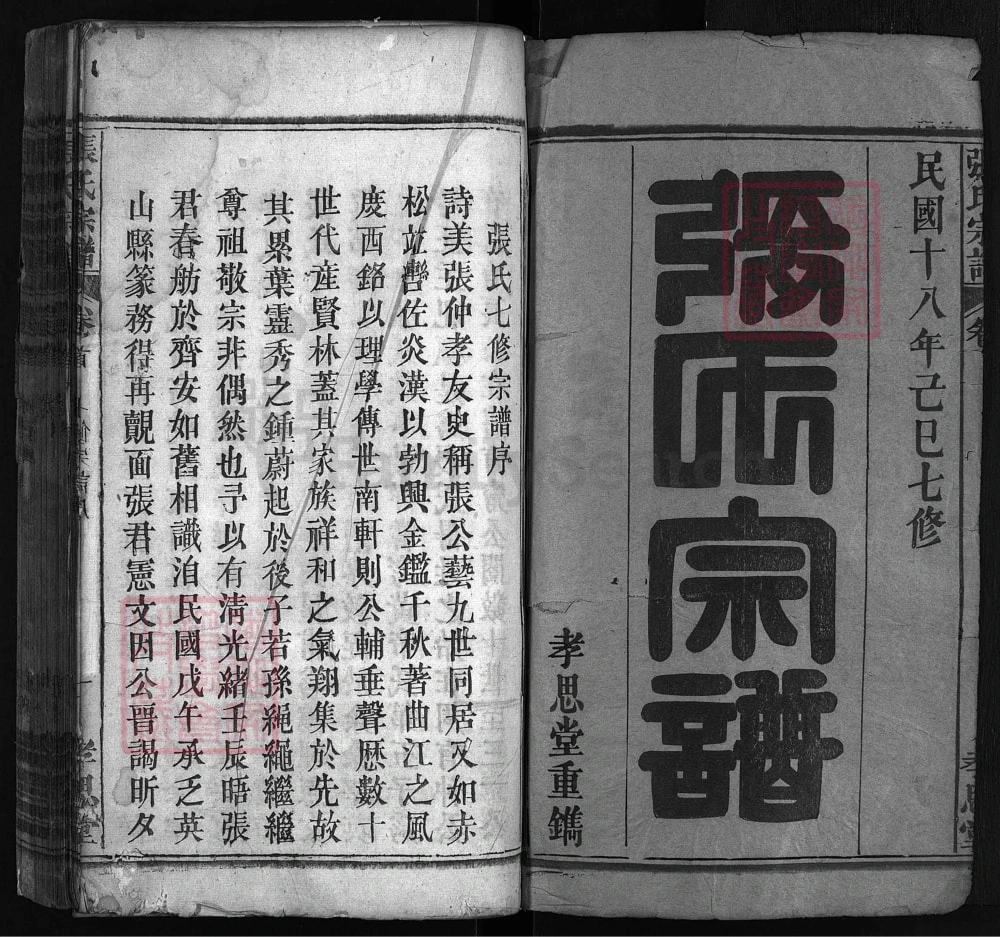 民國十八年己巳七修
張氏宗譜
孝思堂重鐫
張氏七修宗譜序
詩美張仲孝友史稱張公藝九世同居又如赤
松竝轡佐炎漢以勃興金鑑千秋著曲江之風
度西銘以理學傳世南軒則公輔垂聲歷數十
世代産賢林蓋其家族祥和之氣翔集於先故
其累葉靈秀之鍾蔚起於後子若孫繩繩繼繼
尊祖敬宗非偶然也予以有清光緒壬辰晤張
君春舫於齊安如舊相識洎民國戊午承乏英
山縣篆務得再覿面張君憲文因公晋謁昕夕
張氏宗譜
卷首
孝思堂